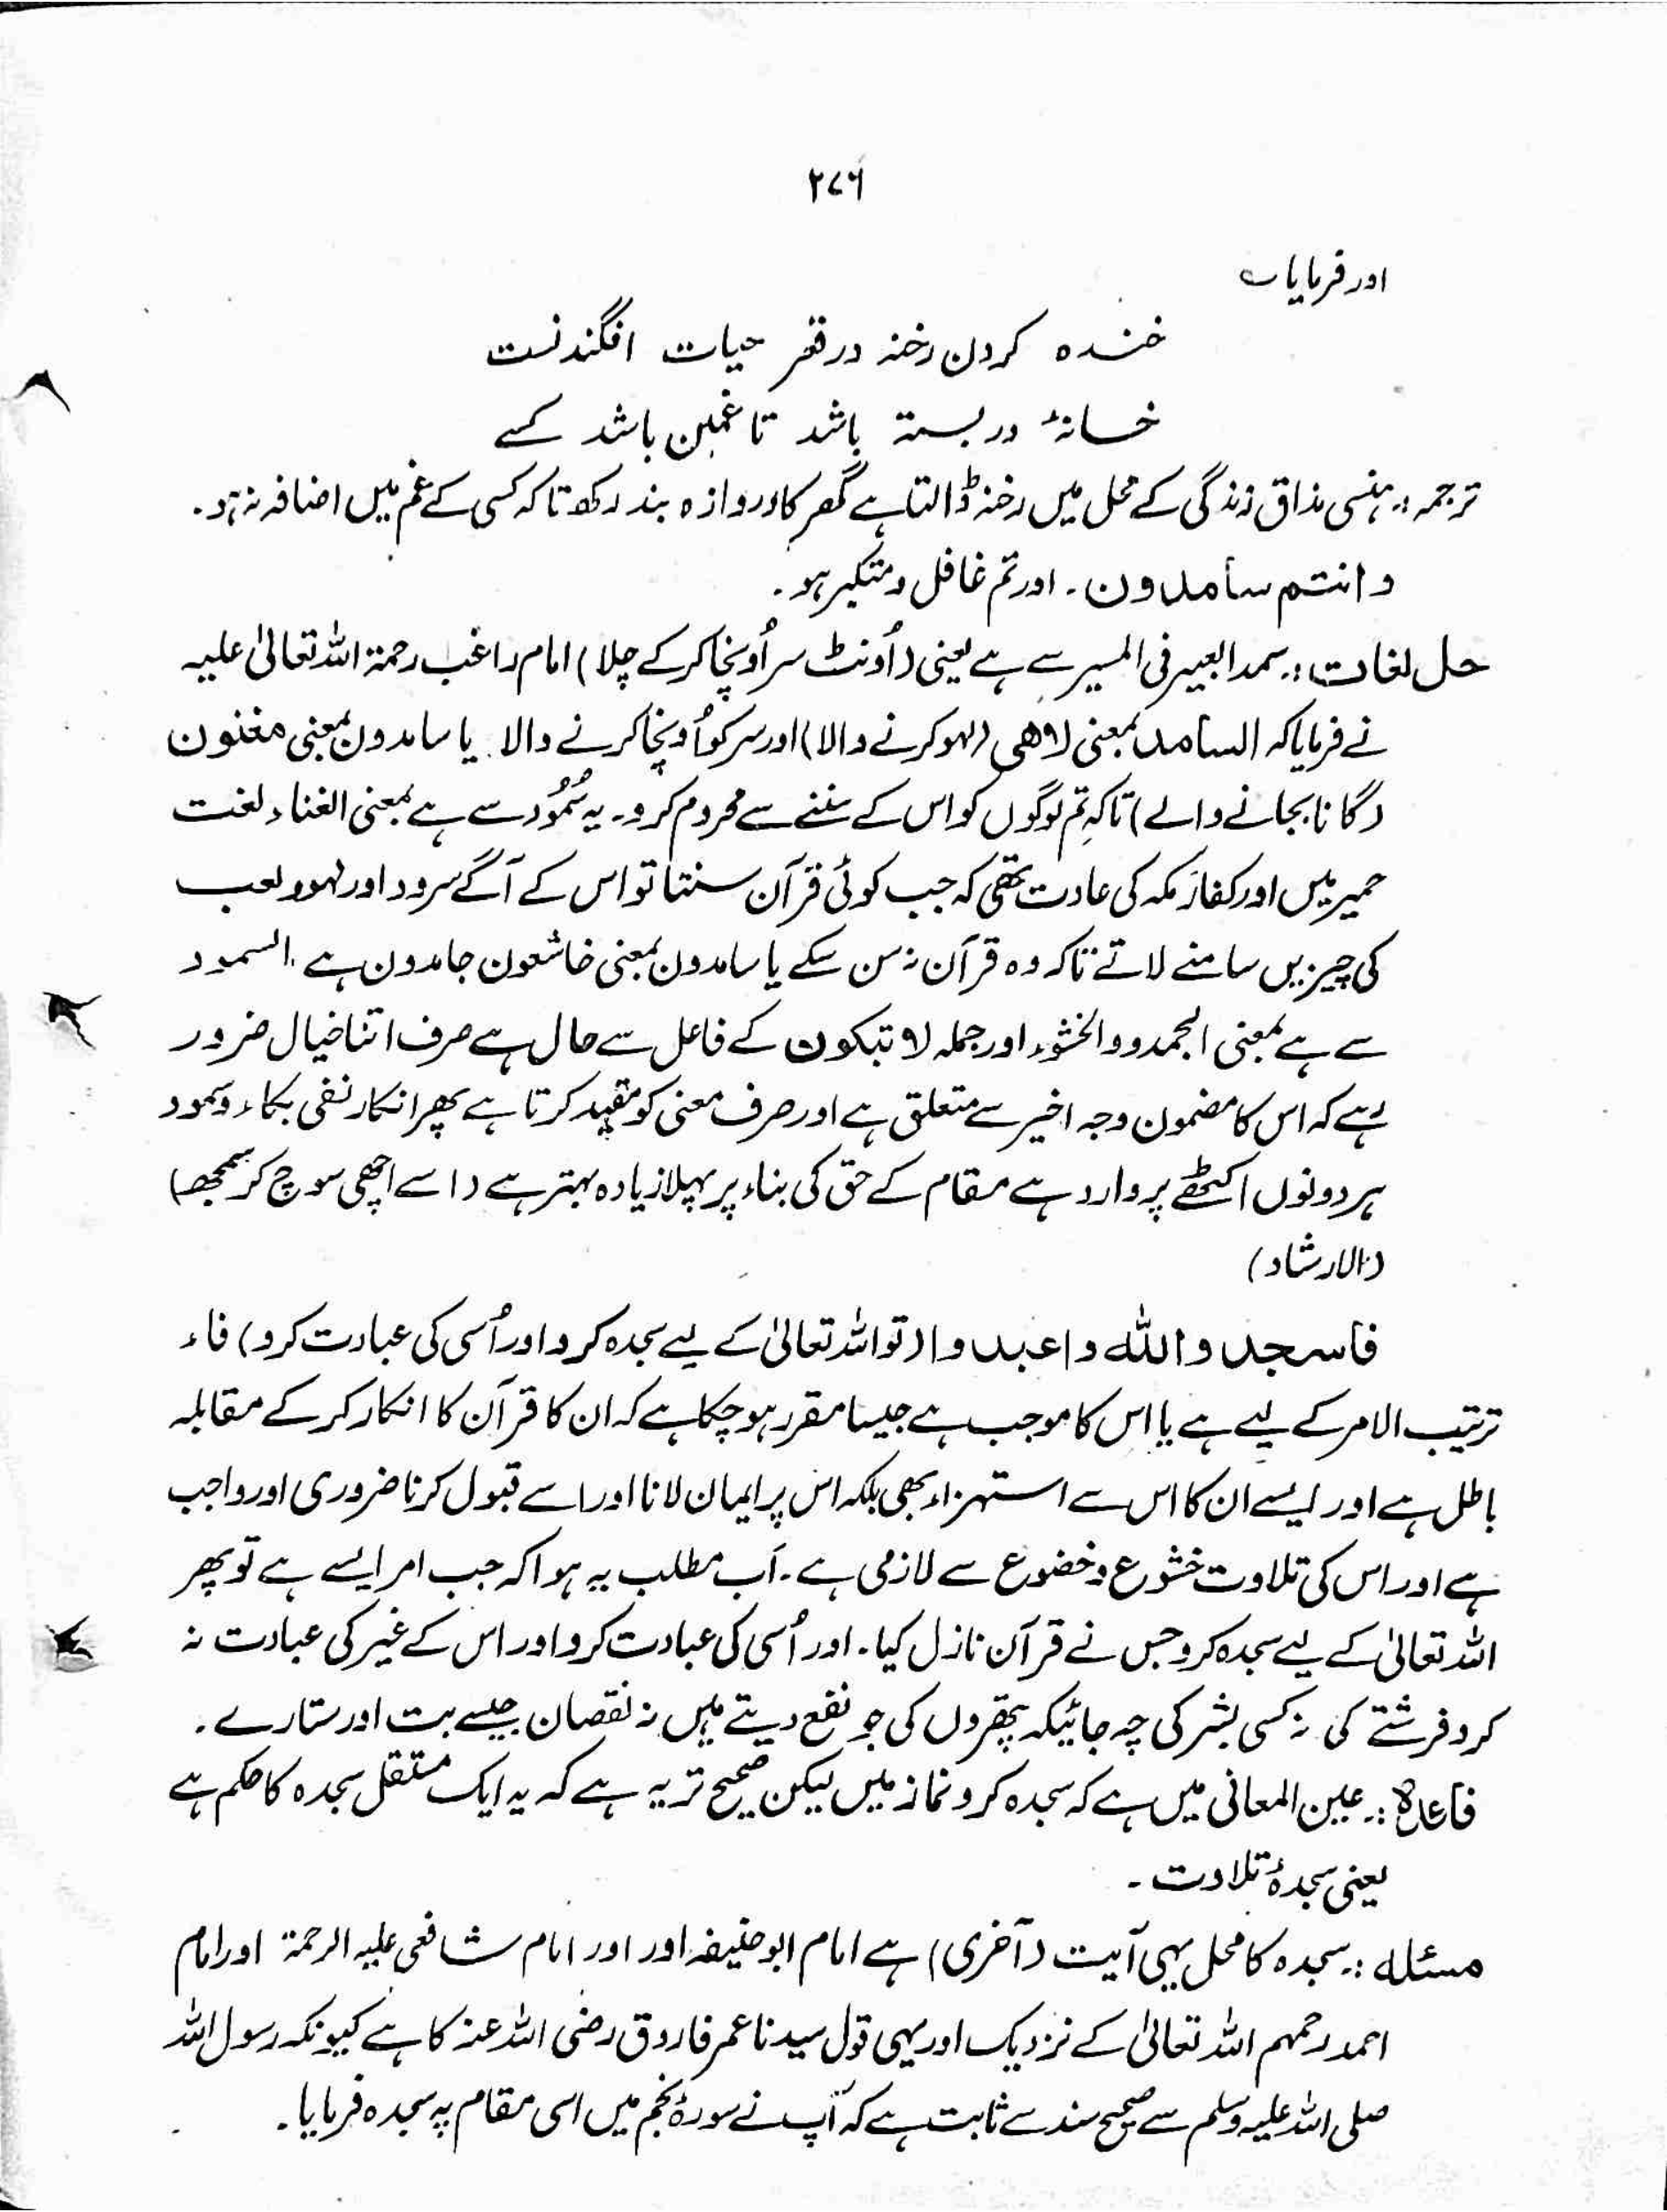 ۲۷۶
اور فرمایا ؎
خندہ کردن رخنہ در قصر حیات افگندنست
خانۂ در بستہ باشد تا غمیں باشد کسے
ترجمہ :۔ ہنسی مذاق زندگی کے محل میں رخنہ ڈالتا ہے گھر کا دروازہ بند رکھو تا کہ کسی کے غم میں اضافہ نہ ہو۔
وانتم سامدون۔ اور تم غافل و متکبر ہو۔
حل لغات :۔ سمد البعیر فی المسیر سے ہے یعنی (اُونٹ سر اُونچا کر کے چلا) امام راغب رحمۃ اللہ تعالیٰ علیہ
نے فرمایا کہ السامد بمعنی لاھی (لہو کرنے والا) اور سر کو اُونچا کرنے والا۔ یا سامدون بمعنی مغنون
(گانا بجانے والے) تاکہ تم لوگوں کو اس کے سننے سے محروم کرو۔ یہ سُمُود سے ہے بمعنی الغناء لغت
حمیر میں اور کفار مکہ کی عادت تھی کہ جب کوئی قرآن سنتا تو اس کے آگے سرود اور لہو و لعب
کی چیزیں سامنے لاتے تاکہ وہ قرآن نہ سن سکے یا سامدون بمعنی خاشعون جامدون ہے۔ السمود
سے ہے بمعنی الجمدو والخشوء اور جملہ لا تبکون کے فاعل سے حال ہے صرف اتنا خیال ضرور
رہے کہ اس کا مضمون وجہ اخیر سے متعلق ہے اور صرف معنی کو مقید کرتا ہے پھر انکار نفی بکاء و سمود
ہر دونوں اکٹھے پر وارد ہے مقام کے حق کی بناء پر پہلا زیادہ بہتر ہے (اسے اچھی سوچ کر سمجھ)
(الارشاد)
فاسجدواللہ واعبدوا (تو اللہ تعالیٰ کے لیے سجدہ کرو اور اُسی کی عبادت کرو) فاء
ترتیب الامر کے لیے ہے یا اس کا موجب ہے جیسا مقرر ہو چکا ہے کہ ان کا قرآن کا انکار کر کے مقابلہ
باطل ہے اور ایسے ان کا اس سے استہزاء بھی بلکہ اس پر ایمان لانا اور اسے قبول کرنا ضروری اور واجب
ہے اور اس کی تلاوت خشوع و خضوع سے لازمی ہے۔ اَب مطلب یہ ہوا کہ جب امر ایسے ہے تو پھر
اللہ تعالیٰ کے لیے سجدہ کرو جس نے قرآن نازل کیا۔ اور اُسی کی عبادت کرو اور اس کے غیر کی عبادت نہ
کرو فرشتے کی نہ کسی بشر کی چہ جائیکہ پتھروں کی جو نفع دیتے ہیں نہ نقصان جیسے بت اور ستارے۔
قاعدہ :۔ عین المعانی میں ہے کہ سجدہ کرو نماز میں لیکن صحیح تر یہ ہے کہ یہ ایک مستقل سجدہ کا حکم ہے
یعنی سجدۂ تلاوت۔
مسئلہ :۔ سجدہ کا محل یہی آیت (آخری) ہے امام ابو حنیفہ اور اور امام شافعی علیہ الرحمۃ اور امام
احمد رحمہم اللہ تعالیٰ کے نزدیک اور یہی قول سیدنا عمر فاروق رضی اللہ عنہ کا ہے کیونکہ رسول اللہ
صلی اللہ علیہ وسلم سے صحیح سند سے ثابت ہے کہ آپ نے سورۂ نجم میں اسی مقام پہ سجدہ فرمایا۔